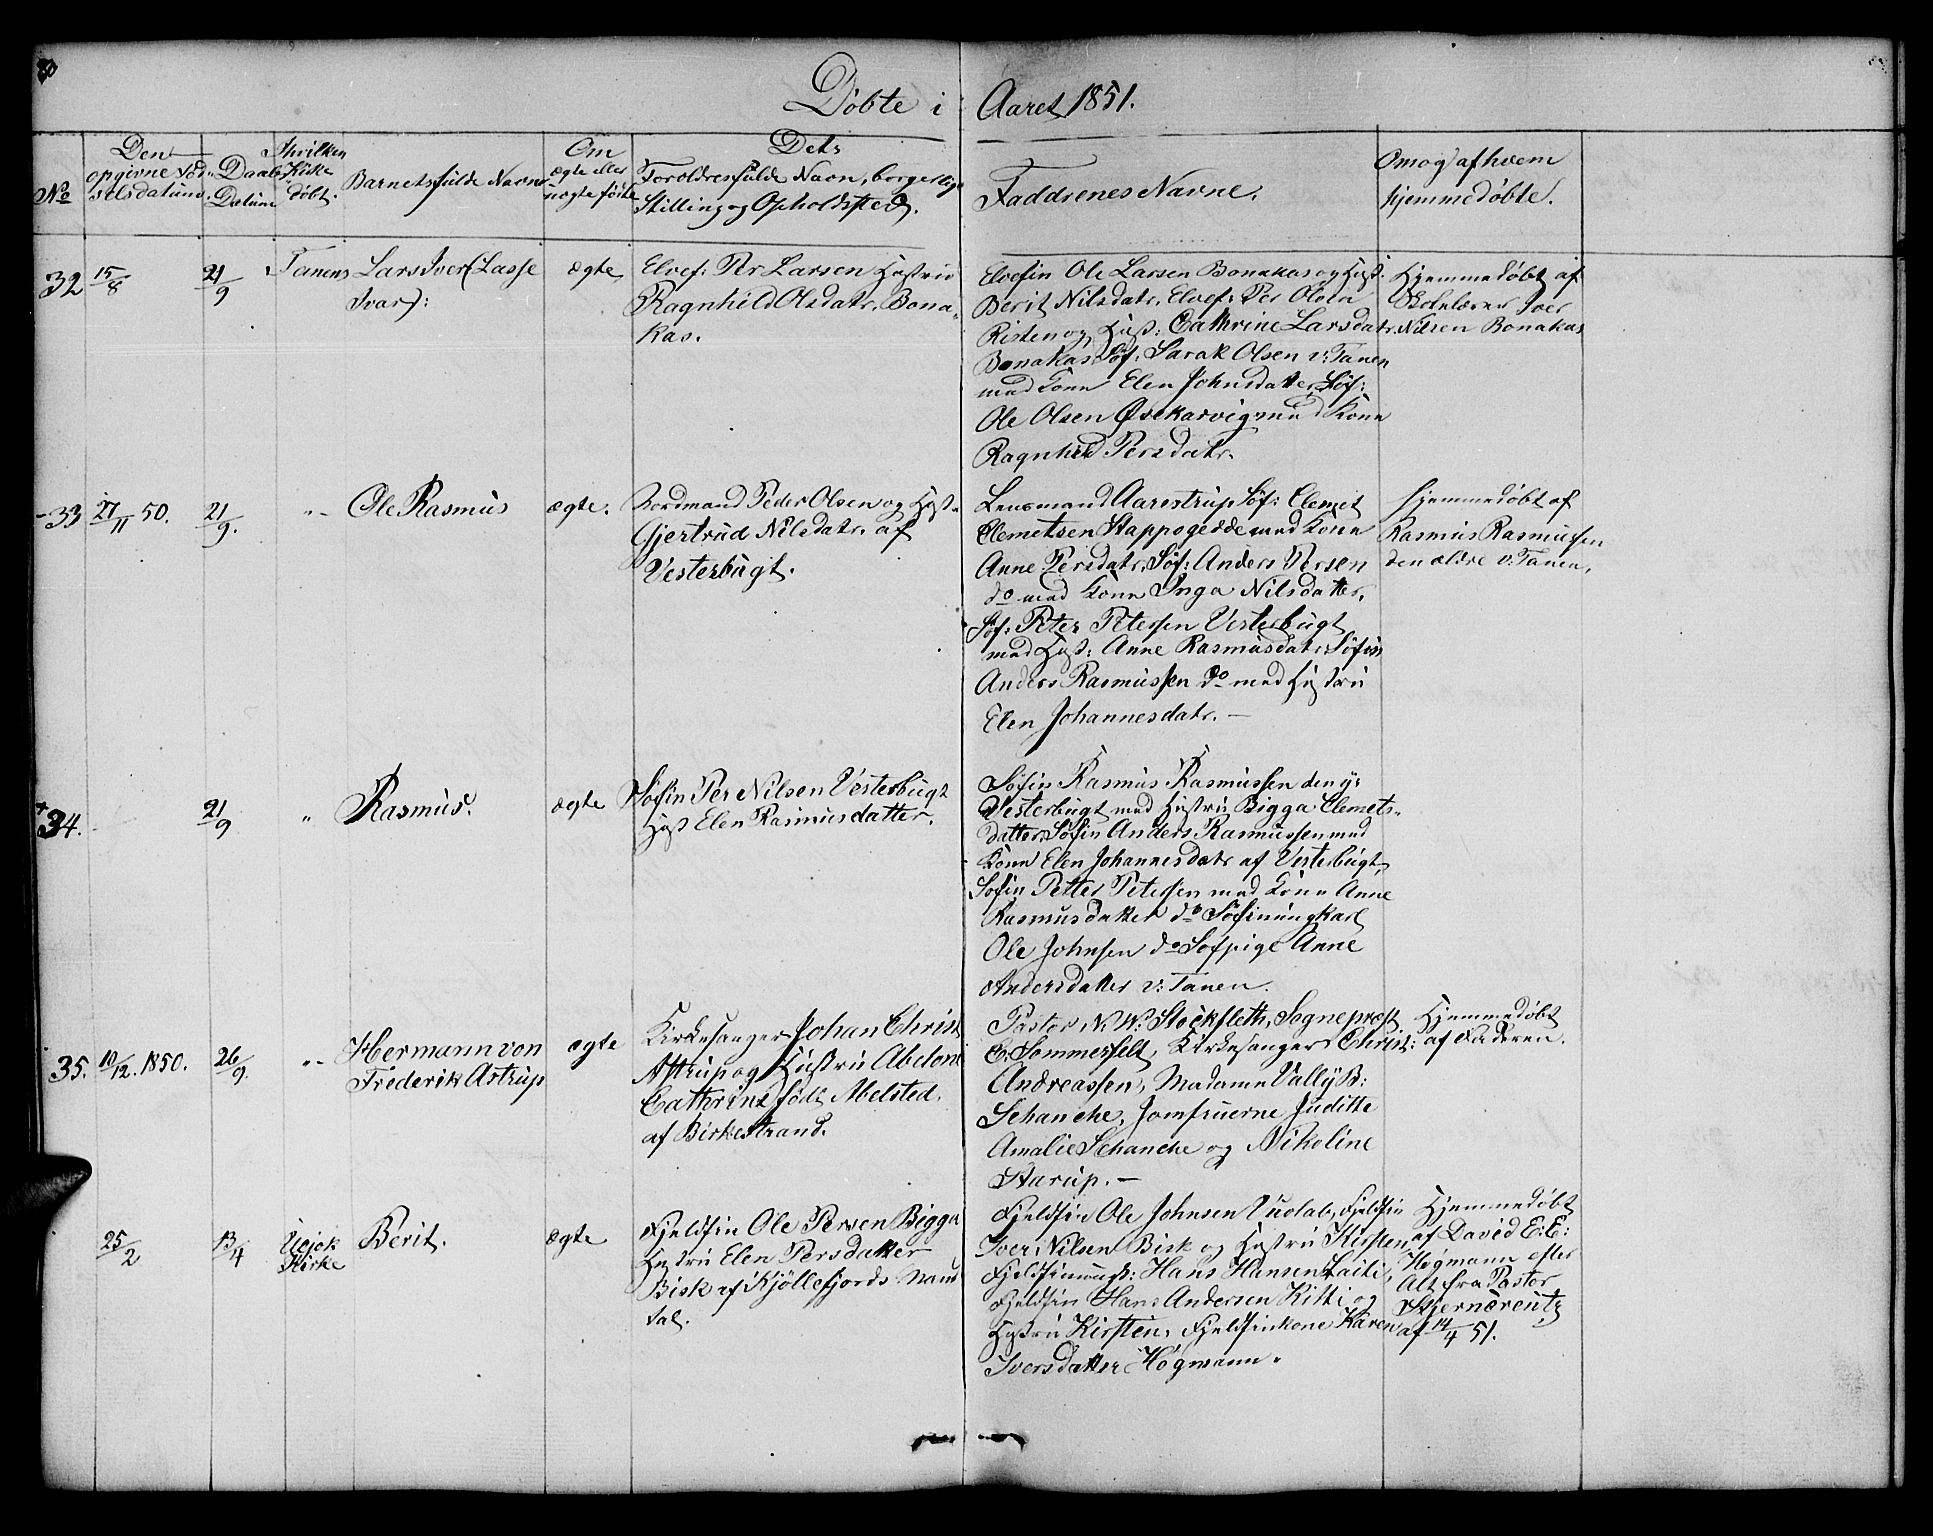 Døbte i Aaret 1851.
No
Den opgivne Fødselsdatum.
Daabs Datum
I hvilken Kirke døbt.
Barnets fulde Navn
Om ægte eller uægte født
Dets Forældres fulde Navn, borgerlige
Stilling og Opholdssted.
Faddrenes Navne.
Om og af hvem
hjemmedøbte.
32 15/8 21/9 Tanens Lars Iver (Lasse
Ivar): ægte
Elvef: Per Larsen Hustrue
Ragnhild Olsdatr. Bona-
kas.
Elvefin Ole Larsen Bonakas og Hust:
Berit Nilsdatr. Elvef: Per Olsen
Risten og Hust: Cathrine Larsdatr.
Bonakas Søf: Sarak Olsen v: Tanen
med Kone Elen Johnsdatter, Søf:
Ole Olsen Øvekarvig med Kone
Ragnhild Persdatr.
Hjemmedøbt af
Skolelærer Iver
Nilsen Bonakas
33 27/11 50. 21/9. "- Ole Rasmus ægte.
Nordmand Peder Olsen og Hust.
Gjertrud Nilsdatr. af
Vesterbugt.
Lensmand Aarestrup Søf: Clemet
Clemetsen Stappogedde med Kone
Anne Persdatr. Søf: Anders Persen
do med Kone Inga Nilsdatter.
Søf: Peter Petersen Vesterbugt
med Hust: Anne Rasmusdatr. Søfin
Anders Rasmussen do med Hustru
Elen Johannesdatr. —
Hjemmedøbt af
Rasmus Rasmussen
den ældre v: Tanen.
34. 21/9 " Rasmus. ægte
Søfin Per Nilsen Vesterbugt
Hust Elen Rasmusdatter.
Søfin Rasmus Rasmussen den y:
Vesterbugt med Hustru Bigga Clemets-
datter, Søfin Anders Rasmussen med
Kone Elen Johannesdatr af Vesterbugt,
Søfin Petter Petersen med Kone Anne
Rasmusdatter do Søfinungkarl
Ole Johnsen do Søfpige Anne
Andersdatter v: Tanen.
35. 10/12. 1850. 26/9. "- Hermann von
Frederik Astrup ægte
Kirkesanger Johan Christ
Astrup og Hustru Abelone
Cathrine født Abelsted.
af Birkestrand.
Pastor N. W. Stockfleth, Sognepræst
C. Sommerfelt, Kirkesanger Christ:
Andreassen, Madame Vally B:
Schanche, Jomfruerne Juditte
Amalie Schanche og Nikoline
Starup. —
Hjemmedøbt
af Faderen.
25/2 13/4 Utsjok
Kirke Berit. ægte
Fjeldfin Ole Persen Bigga
Hustru Elen Persdatter
Bisk af Kjøllefjords Nam
tal.
Fjeldfin Ole Johnsen Vuolab, Fjeldfin
Iver Nilsen Bisk og Hustru Kirsten,
Fjeldfinungk: Hans Hansen Laiti,
Fjeldfin Hans Andersen Kitti og
Hustru Kirsten, Fjeldfinkone Karen
Iversdatter Høgmann.
Hjemmedøbt
af David E: E:
Høgmann efter
Alt fra Pastor
Stjerncreutz
af 14/4 51.